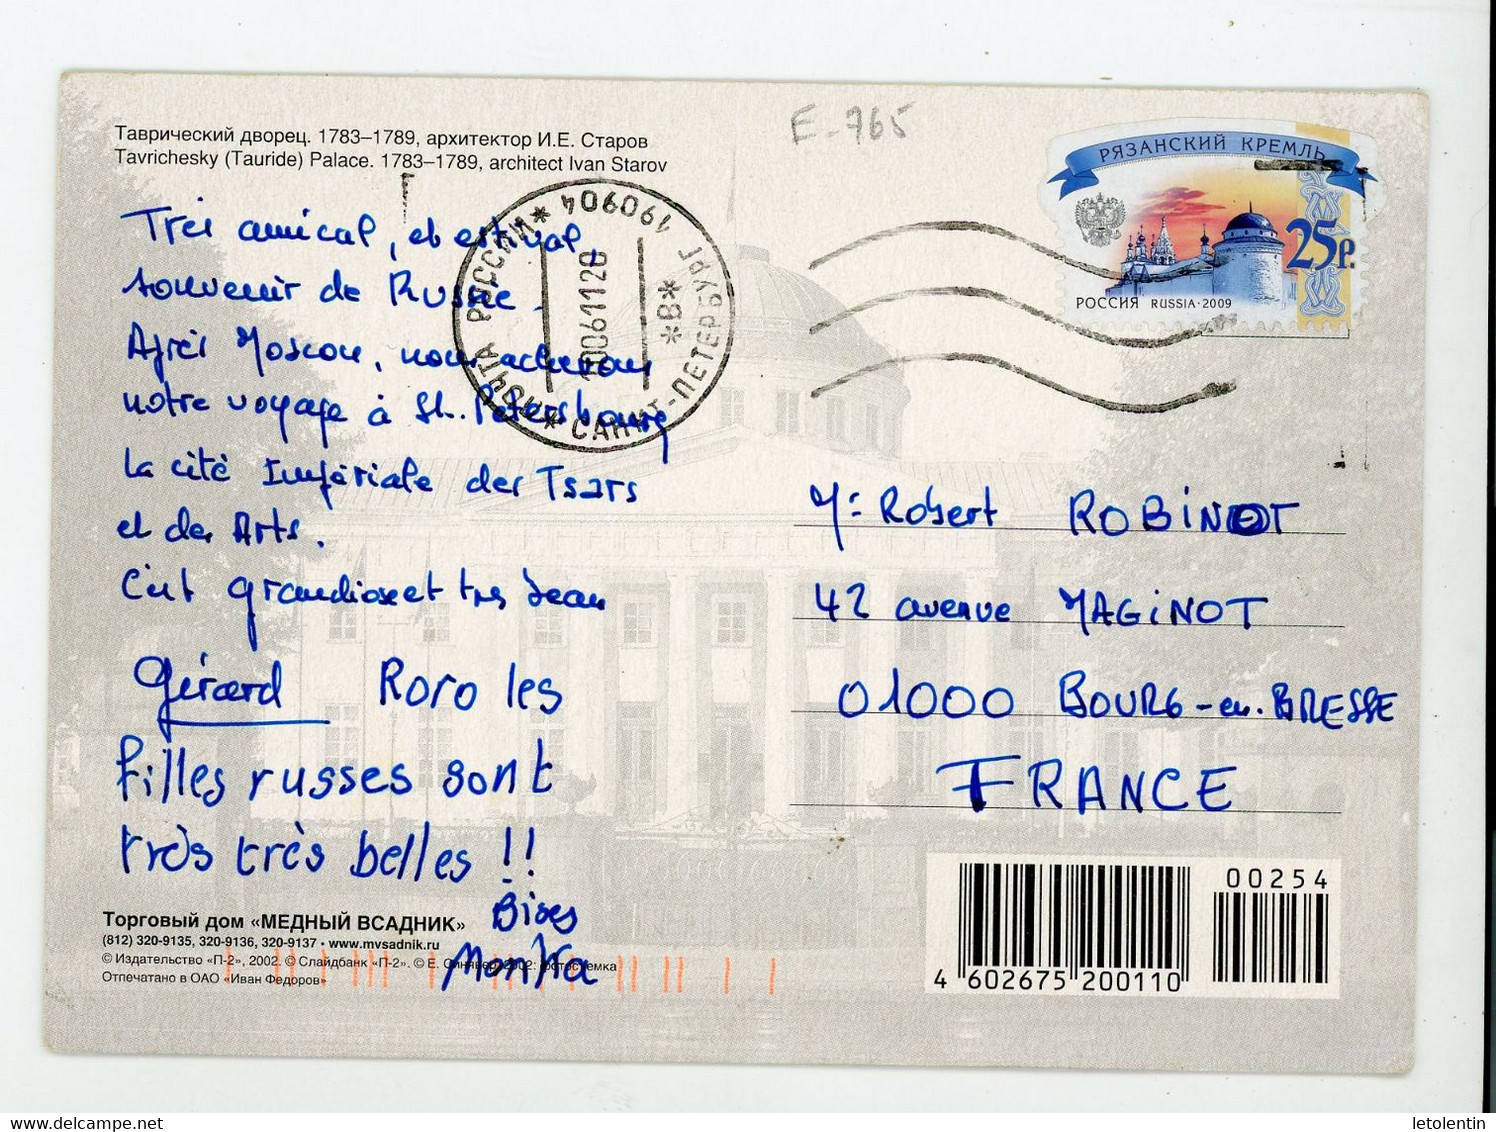 Таврический дворец. 1783–1789, архитектор И.Е. Старов
Tavrichesky (Tauride) Palace. 1783–1789, architect Ivan Starov
E-765
РЯЗАНСКИЙ КРЕМЛЬ
25р.
РОССИЯ RUSSIA·2009
ПОЧТА РОССИИ
190904
*В*
САНКТ-ПЕТЕРБУРГ
Très amical, et estival,
souvenir de Russie.
Après Moscou, nous achevons
notre voyage à St. Petersbourg
la cité Impériale des Tsars
et des Arts.
C'est grandiose et très beau
Gérard Roro les
filles russes sont
très très belles !!
Bises
Monika
Mr Robert ROBINOT
42 avenue MAGINOT
01000 BOURG-en-BRESSE
FRANCE
Торговый дом «МЕДНЫЙ ВСАДНИК»
(812) 320-9135, 320-9136, 320-9137 • www.mvsadnik.ru
© Издательство «П-2», 2002. © Слайдбанк «П-2». © Е. Синявер, 2002: фотосъемка
Отпечатано в ОАО «Иван Федоров»
00254
4 602675 200110
letolentin